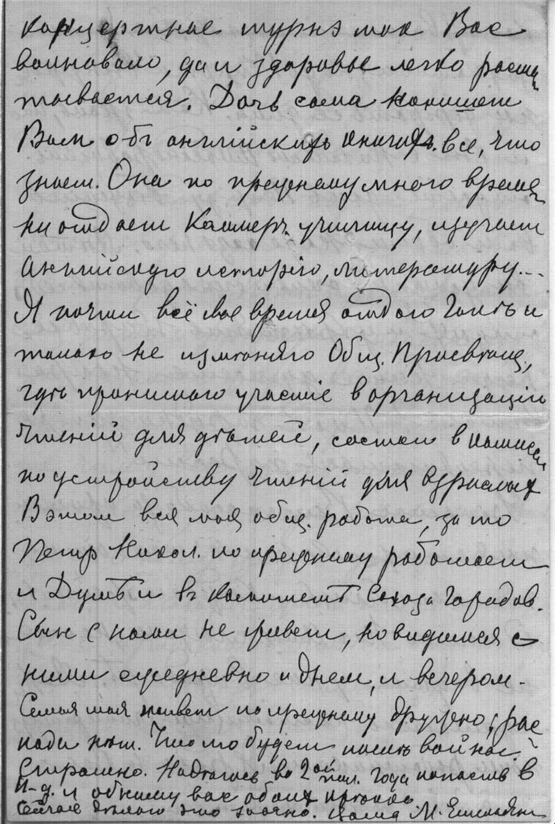 концертное турнэ так Вас
волновало, да и здоровье легко расша-
тывается. Дочь сама напишет
Вам обо английскихъ книгахъ все, что
знает. Она по прежнему много време-
ни отдает Коммерч. училищу, изучает
Английскую исторію, литературу...
Я почти всё свое время отдаю и
только не изменяю Общ. Просвещ,
гдѣ принимаю участіе в организаціи
чтеній для дѣтей, состою в
по устройству чтеній для взрослых
В этом вся моя общ. работа, за то
Петр Никол. по прежнему работает
и Думѣ и въ комитетѣ Союза городов.
Сын с нами не живет, но видимся с
ними ежедневно и днем, и вечером.
Семья моя живет по прежнему дружно, рас-
пада нѣт. Что то будет послѣ войны
страшно. Надеюсь во 2ой пол. года попасть в
П-д. и обниму вас обоих
Сейчас делаю это заочно. Ваша М.